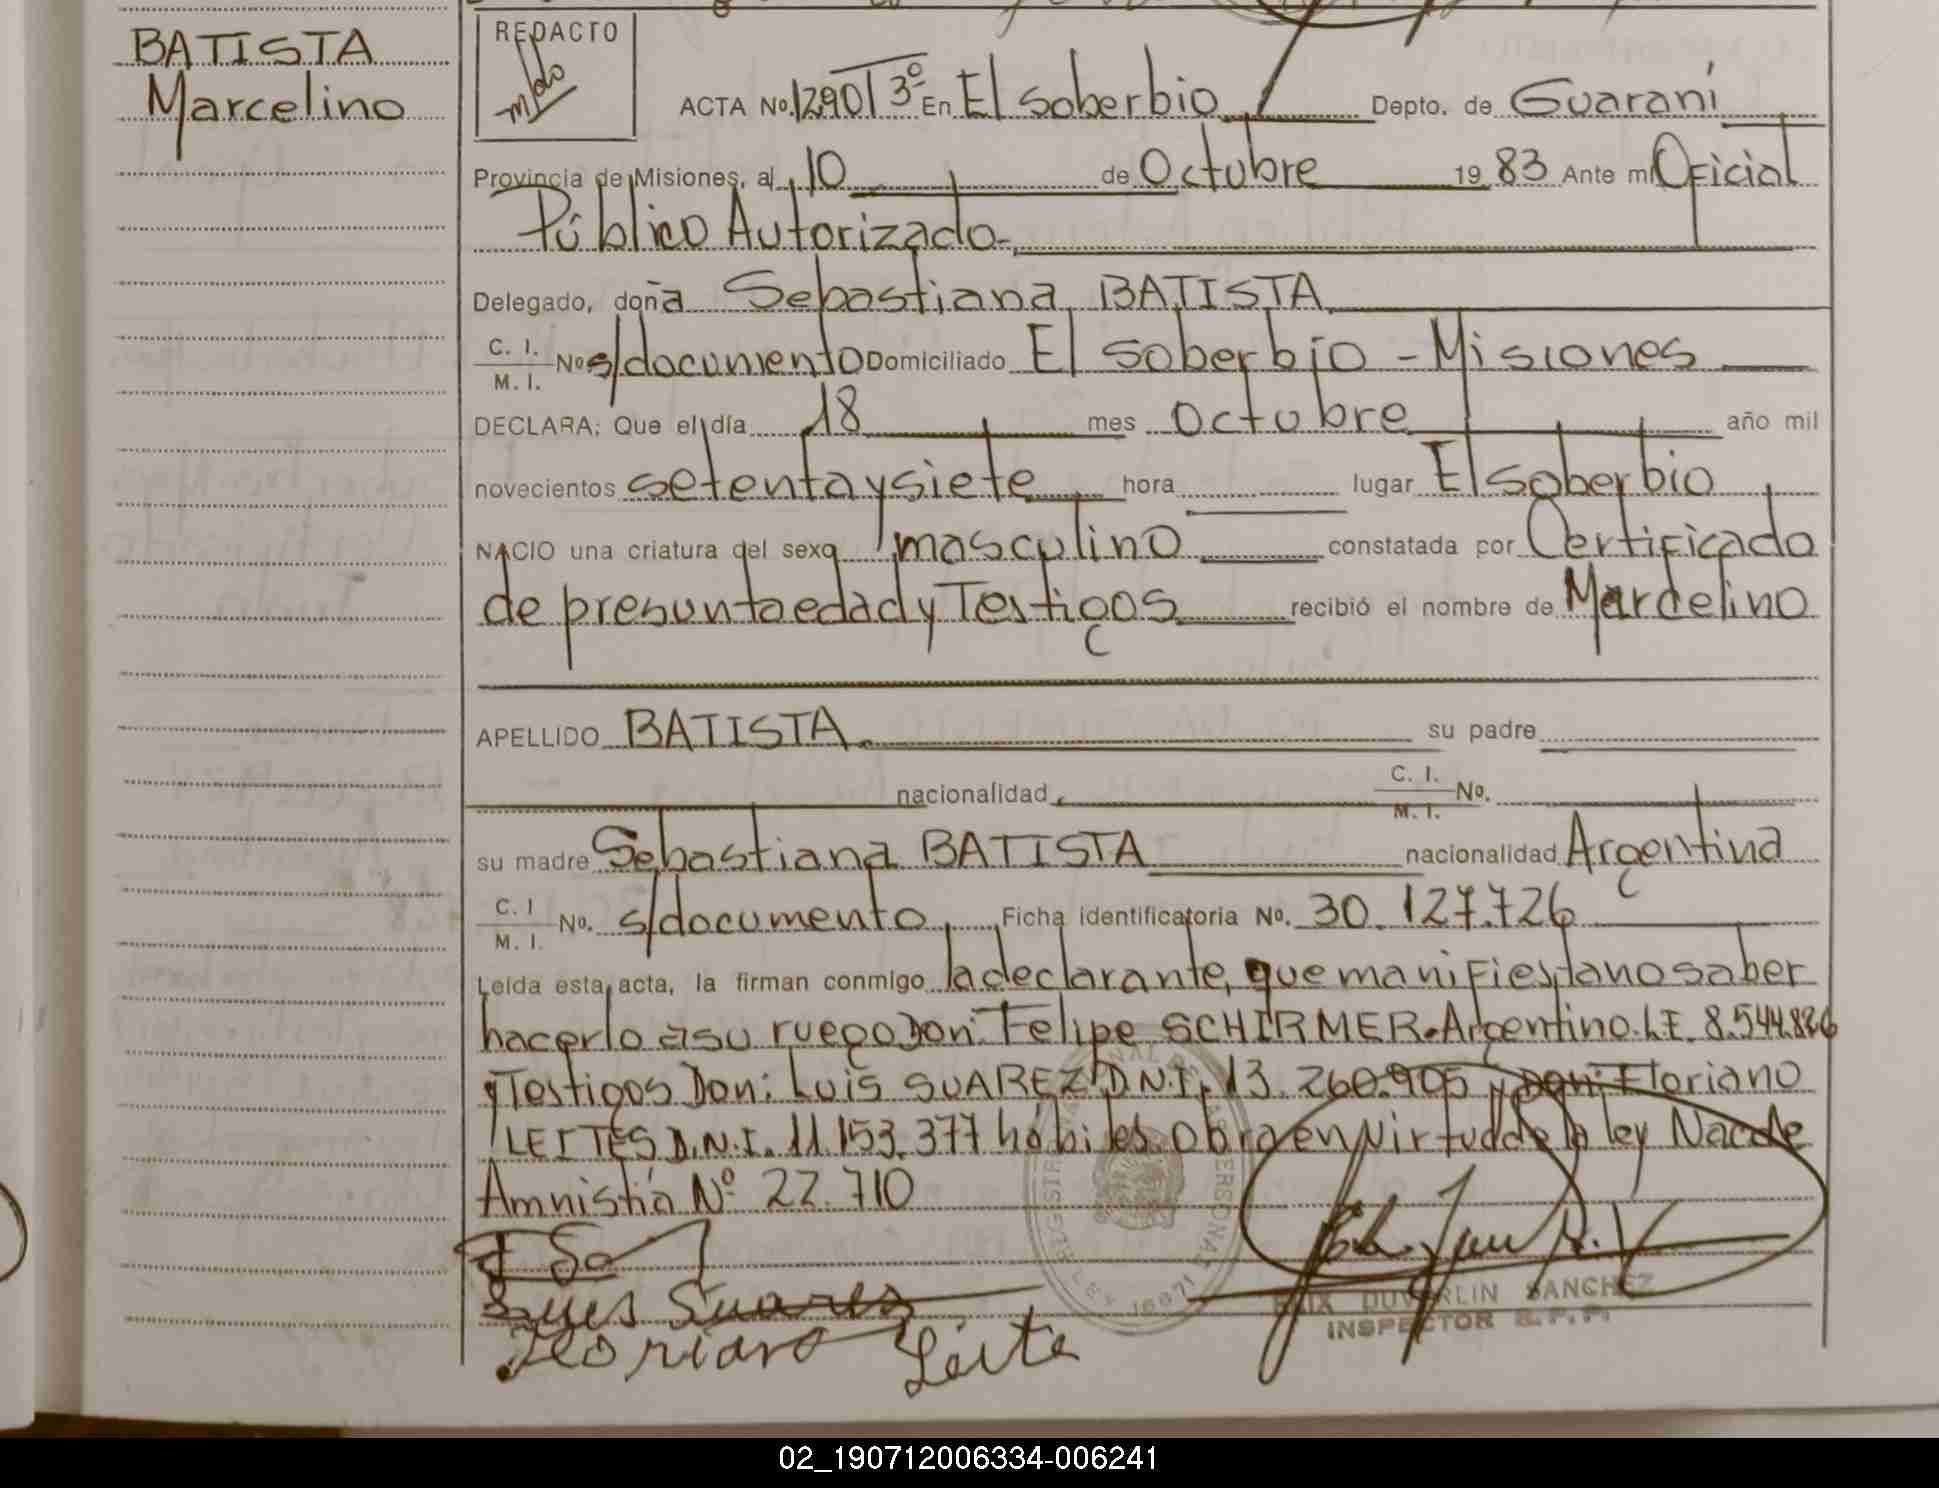 BATISTA
Marcelino
REDACTO
ACTA No. 1290 T 3º En El soberbio Depto. de Guaraní
Provincia de Misiones, a 10 de Octubre 19 83 Ante mí Oficial
Público Autorizado-
Delegado, doña Sebastiana BATISTA
C. I. M. I. No s/documento Domiciliado El soberbio - Misiones
DECLARA: Que el día 18 mes octubre año mil
novecientos setenta y siete hora lugar El soberbio
NACIO una criatura del sexo masculino constatada por Certificado
de presunta edad y Testigos recibió el nombre de Marcelino
APELLIDO BATISTA. su padre
nacionalidad C. I. M. I. No.
su madre Sebastiana BATISTA nacionalidad Argentina
C. I M. I. No. s/documento Ficha identificatoria No. 30.127.726
Leída esta acta, la firman conmigo la declarante, que manifiesta no saber
hacerlo a su ruego Don: Felipe SCHIRMER. Argentino. L.E. 8.544.826
y Testigos Don: Luis SUAREZ D.N.I. 13.260.905 y Don: Floriano
LEITES D.N.I. 11.153.377 hábiles. Obra en virtud de la ley Nac de
Amnistía Nº 22.710
Luis Suares
Floriano Leite
DUVERLIN SANCHEZ
INSPECTOR R.P.P.
02_190712006334-006241